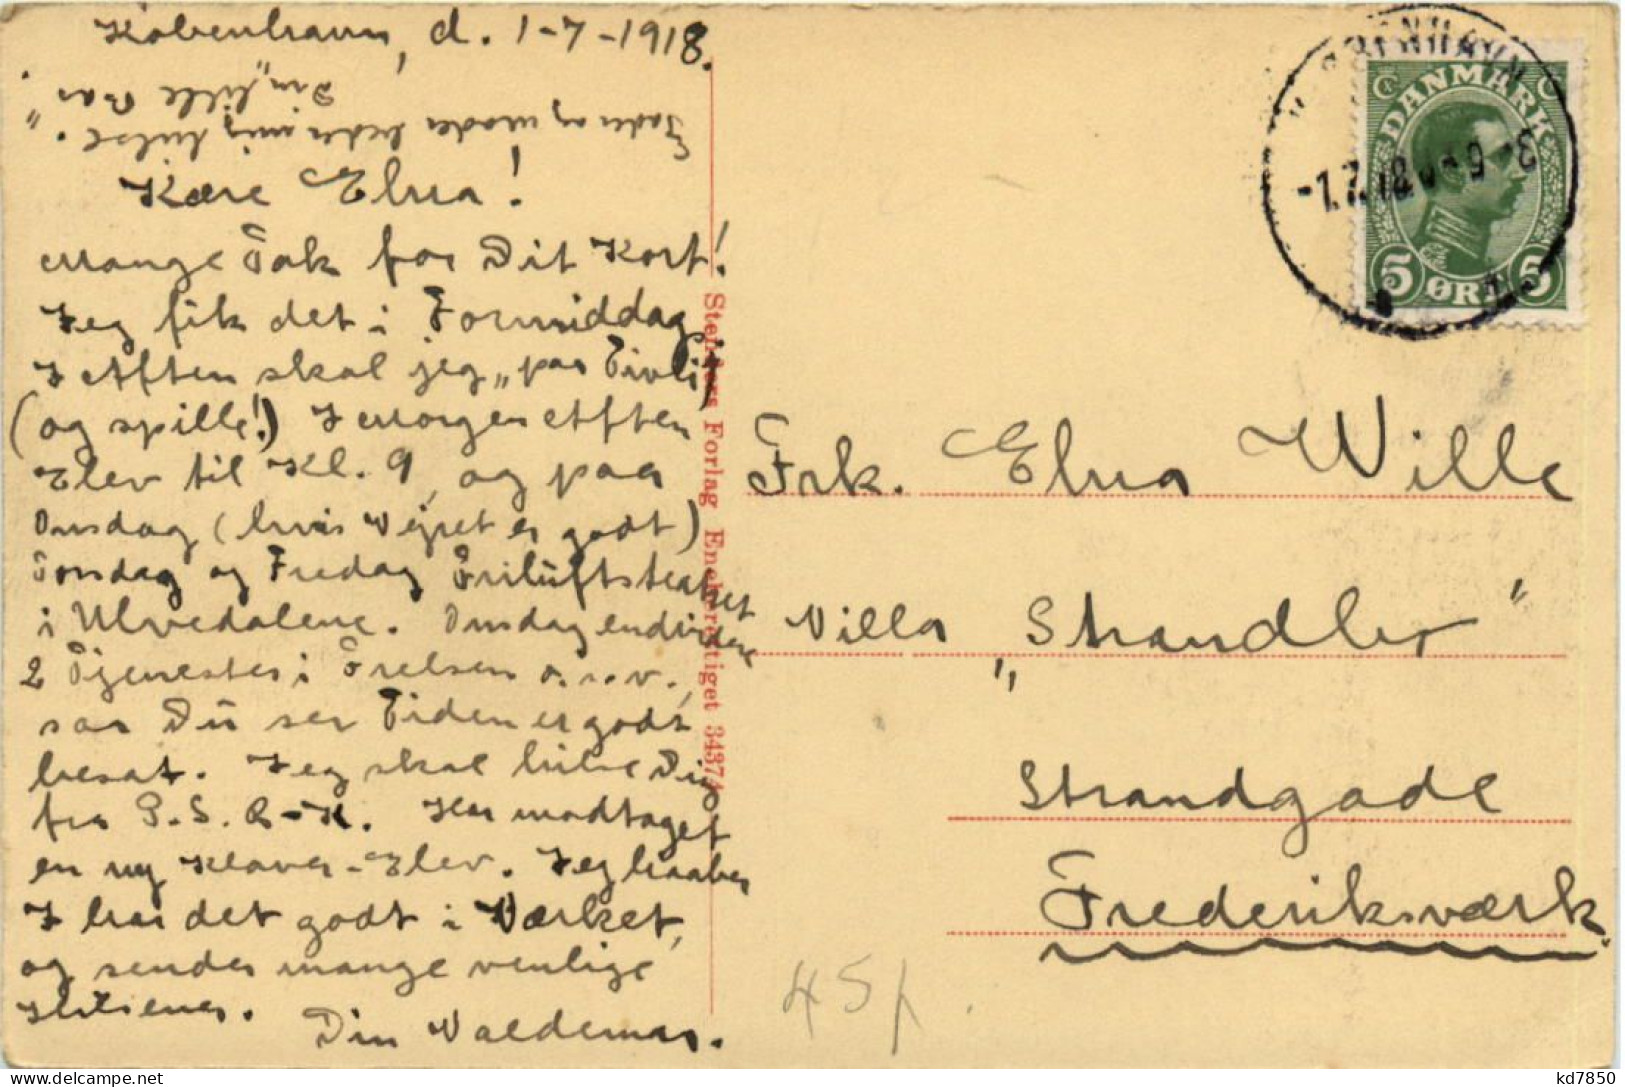 København, d. 1-7-1918.
Fader og moder beder mig hilse.
Din „lille Bar".
Kære Elna!
Mange Tak for Dit Kort!
Jeg fik det i Formiddag,
I Aften skal jeg „paa Tivoli"
(og spille!) I Morgen Aften
Elev til Kl. 9, og paa
Onsdag (hvis Vejret er godt)
Torsdag og Fredag Friluftsteatret
i Ulvedalene. Onsdag endvidere
2 Tjenester i Frelsers o.s.v.,
saa Du ser Tiden er godt
besat. Jeg skal hilse Dig
fra P.S. R-K. Har modtaget
en ny Klaver-Elev. Jeg haaber
I har det godt i Værket,
og sender mange venlige
Hilsener.
Din Valdemar.
Stenders Forlag Eneberettiget 34374
KJØBENHAVN
-1.7.18. 8-9
DANMARK
5 ØRE 5
Frk. Elna Wille
Villa „Strandbo"
Strandgade
Frederiksværk.
45
kd7850